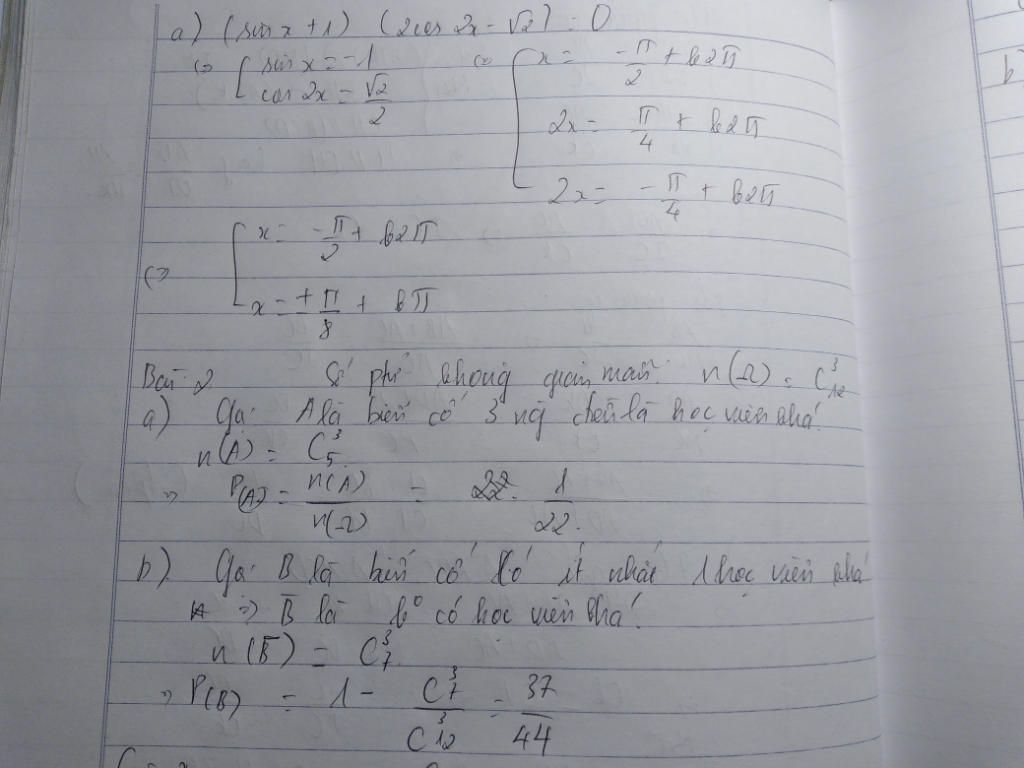 a) (sin x + 1) (2cos 2x - √2) = 0
<=> [ sin x = -1 <=> [ x = -π/2 + k2π
cos 2x = √2/2
2x = π/4 + k2π
2x = -π/4 + k2π
<=> [ x = -π/2 + k2π
x = ± π/8 + kπ
Bài 2 Số ptử không gian mẫu: n(Ω) = C³₁₂
a) Gọi A là biến cố 3 ng đều là học viên khá.
n(A) = C³₅.
=> P(A) = n(A)/n(Ω) = 1/22.
b) Gọi B là biến cố có ít nhất 1 học viên khá
=> B̅ là k° có học viên khá.
n(B̅) = C³₇.
=> P(B) = 1 - C³₇/C³₁₂ = 37/44
b